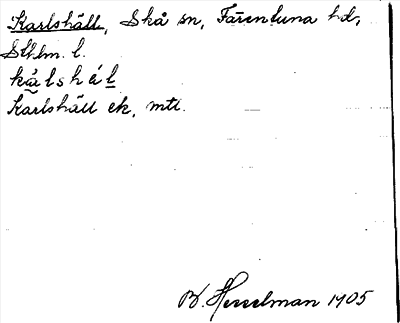 Karlshäll, Skå sn, Färentuna hd,
Sthlm. l.
kálshál
Karlshäll ek, mtl.
B. Hesselman 1905